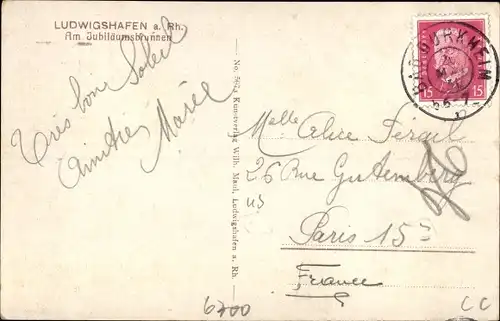 LUDWIGSHAFEN a. Rh.
Am Jubiläumsbrunnen
Très bon Soleil
Amitiés Marie
Kunstverlag Wilh. Maul, Ludwigshafen a. Rh.
15 15
DÜRKHEIM
Melle Alice
26 Rue Gutemberg
Paris 15
France
6700
CC